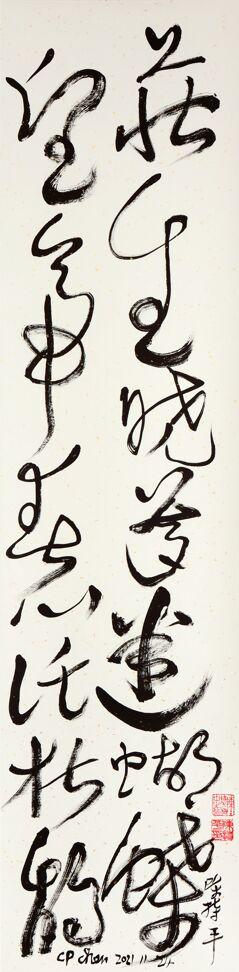 莊生曉夢迷蝴蝶
望帝春心托杜鵑
CP Shen 2021.11.21